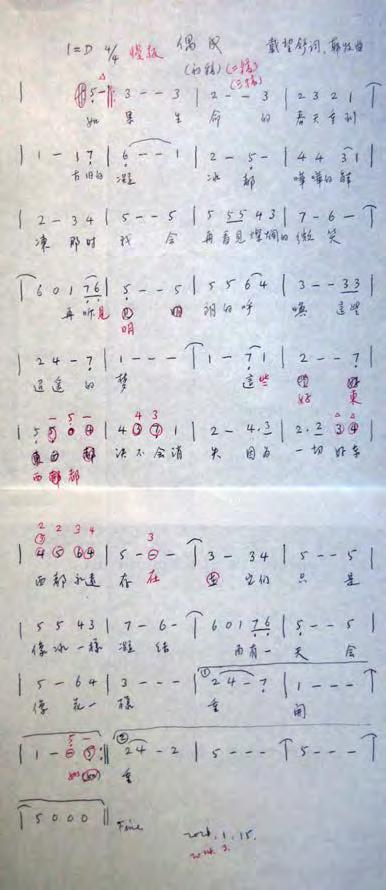 1=D 4/4 慢板 偶成 戴望舒词
(初稿)(二稿)
(三稿)
5 - 3 - - 3 | 2 - - 3 | 2 3 2 1 |
如 果 生 命 的 春天重到
| 1 - 1 7 | 6 - - 1 | 2 - 5 - | 4 4 3 1 |
古旧的 凝 冰 都 哗哗的解
| 2 - 3 4 | 5 - - 5 | 5 5 5 4 3 | 7 - 6 - |
冻 那时 我 会 再看见灿烂的 微 笑
6 0 1 7 6 | 5 - - 5 | 5 5 6 4 | 3 - - 3 3 |
再听见 明 朗的呼 唤 这些
明
| 2 4 - 7 | 1 - - - | 1 - 7 1 | 2 - - 7 |
迢遥的 梦 这些 好
好 东
- 5 - 4 3 △ △
| 5 5 0 4 | 4 3 7 1 | 2 - 4 . 3 | 2 . 2 3 4 |
西 都 决不会消 失 因为 一切好东
西都都
2 2 3 4 3
| 4 5 6 4 | 5 - - - | 3 - 3 4 | 5 - - 5 |
西都永远 存 在 它们 只 是
| 5 5 4 3 | 7 - 6 - | 6 0 1 7 6 | 5 - - 5 |
像冰一样 凝 结 而有一 天 会
| 5 - 6 4 | 3 - - - | ① 2 4 - 7 | 1 - - - |
像 花一 样 重 开
5 -
| 1 - ② 2 4 - 2 | 5 - - - | 5 - - - |
如 重
| 5 0 0 0 || Fine